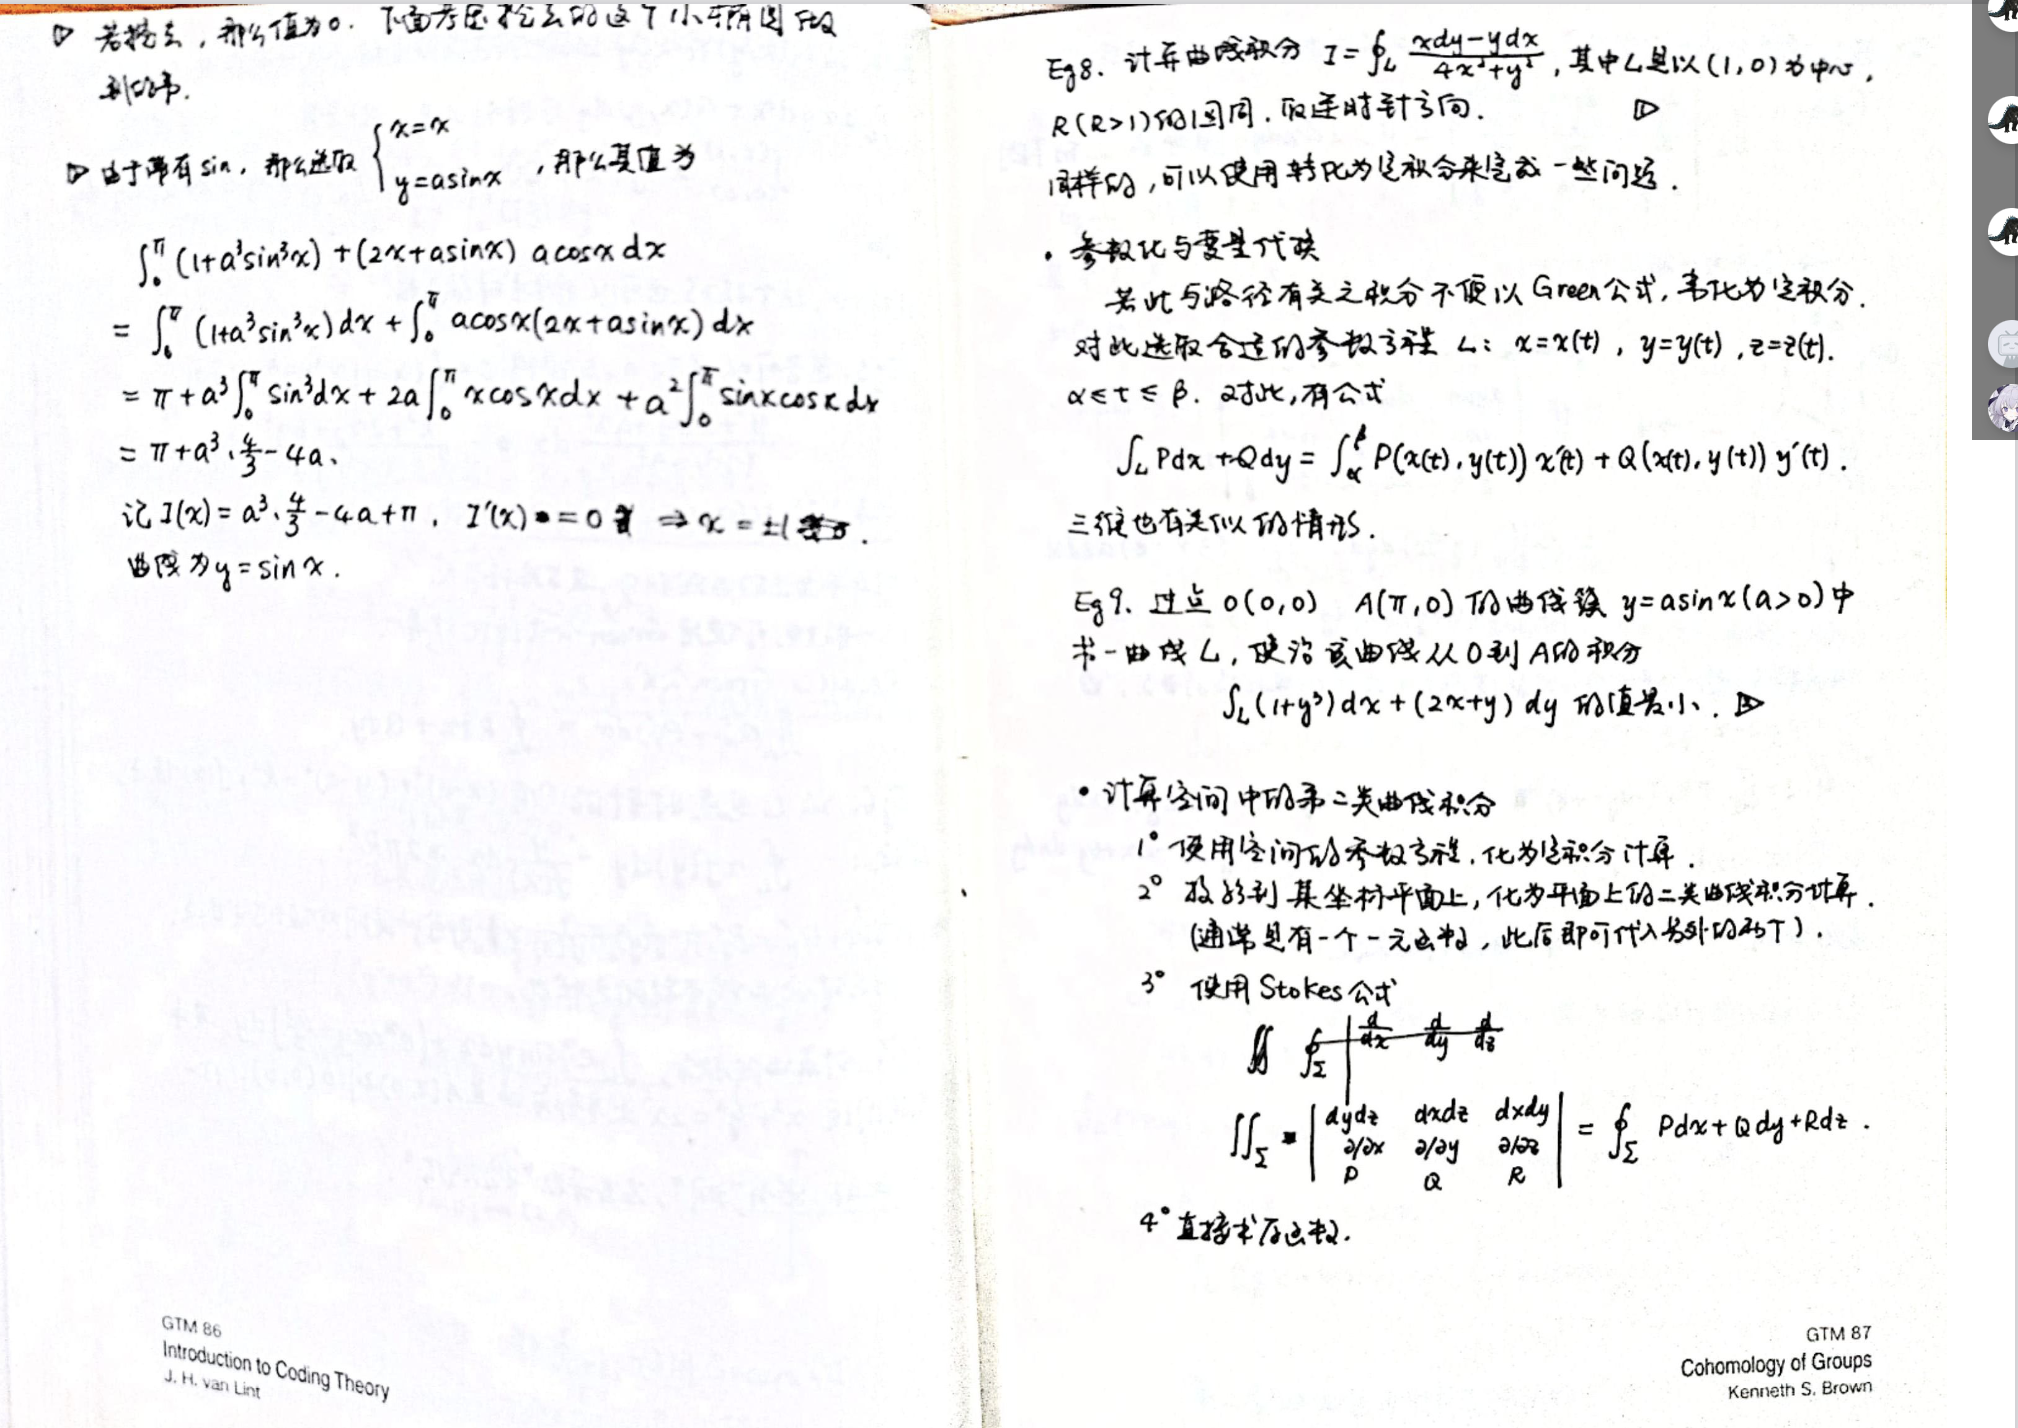 ▷ 若挖去，那么值为0. 下面考虑挖去的这个小椭圆做
到的事.
▷ 由于带有sin, 那么选取 { x=x
y=asinx ，那么其值为
∫₀^π (1+a³sin³x)+(2x+asinx) acosx dx
= ∫₀^π (1+a³sin³x)dx + ∫₀^π acosx(2x+asinx)dx
= π+a³∫₀^π sin³dx + 2a∫₀^π xcosxdx + a²∫₀^π sinxcosxdx
= π+a³·4/3-4a.
记 I(x) = a³·4/3-4a+π, I'(x)=0 ⇒ x=±1
曲线为y=sinx.
GTM 86
Introduction to Coding Theory
J. H. van Lint
Eg8. 计算曲线积分 I=∮_L (xdy-ydx)/(4x²+y²), 其中L是以(1,0)为中心,
R(R>1)的圆周. 取逆时针方向. ▷
同样的,可以使用转化为定积分来完成一些问题.
• 参数化与变量代换
若此与路径有关之积分不便以Green公式, 考化为定积分.
对此选取合适的参数方程 L: x=x(t), y=y(t), z=z(t).
α≤t≤β. 对此,有公式
∫_L Pdx+Qdy = ∫_α^β P(x(t),y(t))x'(t)+Q(x(t),y(t))y'(t).
三维也有类似的情形.
Eg9. 过点O(0,0) A(π,0)的曲线簇 y=asinx(a>0)中
求一曲线L, 使沿该曲线从O到A的积分
∫_L (1+y³)dx+(2x+y)dy 的值最小. ▷
• 计算空间中的第二类曲线积分
1° 使用空间的参数方程, 化为定积分计算.
2° 投影到某坐标平面上, 化为平面上的二类曲线积分计算.
(通常是有一个一元函数, 此后即可代入另外的两个).
3° 使用Stokes公式
∬ ∮_Σ | d/dx d/dy d/dz
∬_Σ | dydz dxdz dxdy
∂/∂x ∂/∂y ∂/∂z
P Q R | = ∮_Σ Pdx+Qdy+Rdz.
4° 直接求原函数.
GTM 87
Cohomology of Groups
Kenneth S. Brown